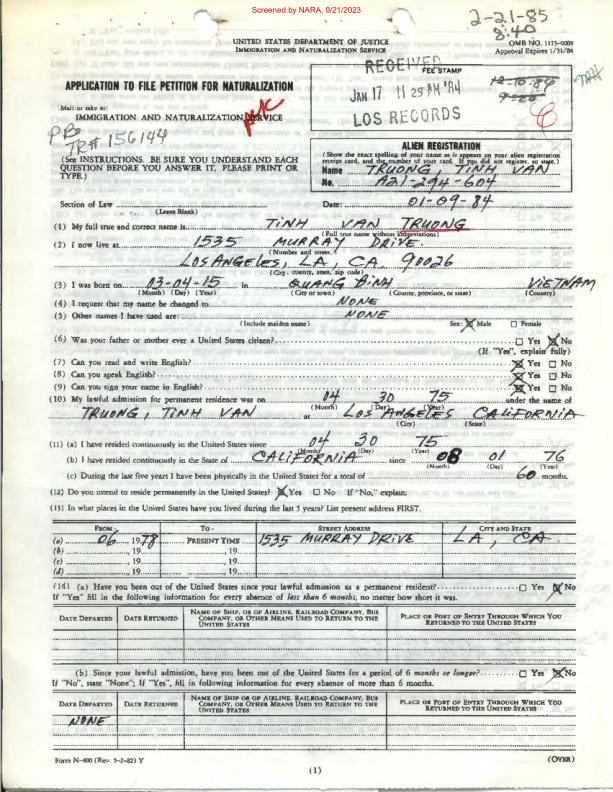 Screened by NARA, 9/21/2023
2-21-85
8:40
UNITED STATES DEPARTMENT OF JUSTICE
IMMIGRATION AND NATURALIZATION SERVICE
OMB NO. 1115-0009
Approval Expires 1/31/84
APPLICATION TO FILE PETITION FOR NATURALIZATION
RECEIVED
FEE STAMP
JAN 17 11 29 AM '84
LOS RECORDS
12-10-84
Mail or take to:
IMMIGRATION AND NATURALIZATION SERVICE
PB
TR# 156144
(See INSTRUCTIONS. BE SURE YOU UNDERSTAND EACH QUESTION BEFORE YOU ANSWER IT. PLEASE PRINT OR TYPE.)
ALIEN REGISTRATION
(Show the exact spelling of your name as it appears on your alien registration receipt card, and the number of your card. If you did not register, so state.)
Name TRUONG, TINH VAN
No. A21-294-604
Section of Law
(Leave Blank)
Date: 01-09-84
(1) My full true and correct name is TINH VAN TRUONG
(Full true name without abbreviations)
(2) I now live at 1535 MURRAY DRIVE
(Number and street,)
LOS ANGELES, LA, CA, 90026
(City, county, state, zip code)
(3) I was born on 03-04-15 in QUANG BINH VIETNAM
(Month) (Day) (Year) (City or town) (County, province, or state) (Country)
(4) I request that my name be changed to NONE
(5) Other names I have used are: NONE
(Include maiden name) Sex: ☒ Male ☐ Female
(6) Was your father or mother ever a United States citizen? ☐ Yes ☒ No
(If "Yes", explain fully)
(7) Can you read and write English? ☒ Yes ☐ No
(8) Can you speak English? ☒ Yes ☐ No
(9) Can you sign your name in English? ☒ Yes ☐ No
(10) My lawful admission for permanent residence was on 04 30 75 under the name of
(Month) (Day) (Year)
TRUONG, TINH VAN at LOS ANGELES CALIFORNIA
(City) (State)
(11) (a) I have resided continuously in the United States since 04 30 75
(Month) (Day) (Year)
(b) I have resided continuously in the State of CALIFORNIA since 08 01 76
(Month) (Day) (Year)
(c) During the last five years I have been physically in the United States for a total of 60 months.
(12) Do you intend to reside permanently in the United States? ☒ Yes ☐ No If "No," explain:
(13) In what places in the United States have you lived during the last 5 years? List present address FIRST.
FROM- TO- STREET ADDRESS CITY AND STATE
(a) 06, 1978 PRESENT TIME 1535 MURRAY DRIVE LA, CA
(b) , 19 , 19
(c) , 19 , 19
(d) , 19 , 19
(14) (a) Have you been out of the United States since your lawful admission as a permanent resident? ☐ Yes ☒ No
If "Yes" fill in the following information for every absence of less than 6 months, no matter how short it was.
DATE DEPARTED DATE RETURNED NAME OF SHIP, OR OF AIRLINE, RAILROAD COMPANY, BUS COMPANY, OR OTHER MEANS USED TO RETURN TO THE UNITED STATES PLACE OR PORT OF ENTRY THROUGH WHICH YOU RETURNED TO THE UNITED STATES
(b) Since your lawful admission, have you been out of the United States for a period of 6 months or longer? ☐ Yes ☒ No
If "No", state "None"; If "Yes", fill in following information for every absence of more than 6 months.
DATE DEPARTED DATE RETURNED NAME OF SHIP OR OF AIRLINE, RAILROAD COMPANY, BUS COMPANY, OR OTHER MEANS USED TO RETURN TO THE UNITED STATES PLACE OR PORT OF ENTRY THROUGH WHICH YOU RETURNED TO THE UNITED STATES
NONE
Form N-400 (Rev. 5-2-82) Y
(OVER)
(1)